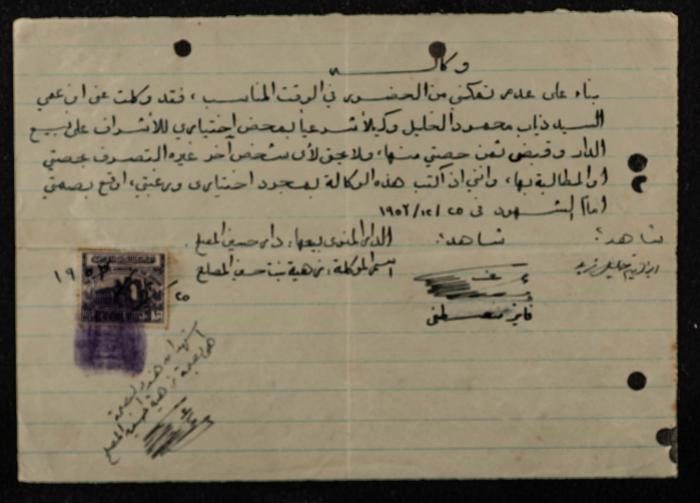 وكالـــــة
بناء على عدم تمكني من الحضور في الوقت المناسب، فقد وكلت عن ابن عمي
السيد ذياب محمود الخليل وكيلاً شرعياً بمحض اختياري للأشراف على بيع
الدار وقبض ثمن حصتي منها، ولا يحق لأي شخص آخر غيره التصرف بحصتي
او المطالبة بها، وانني اذ اكتب هذه الوكالة بمجرد اختياري ورغبتي، اوقع ببصمتي
امام الشهود في ٢٥/١٢/١٩٥٢
شاهد: شاهد: الدار المنوى بيعها، دار حسين المصلح.
ابراهيم خليل اسم الموكلة: نزهية بنت حسين المصلح
فايز مصطفى
١٩٥٢
٢٥
اشهد ان هذه البصمة
هي بصمة نزهية حسين المصلح